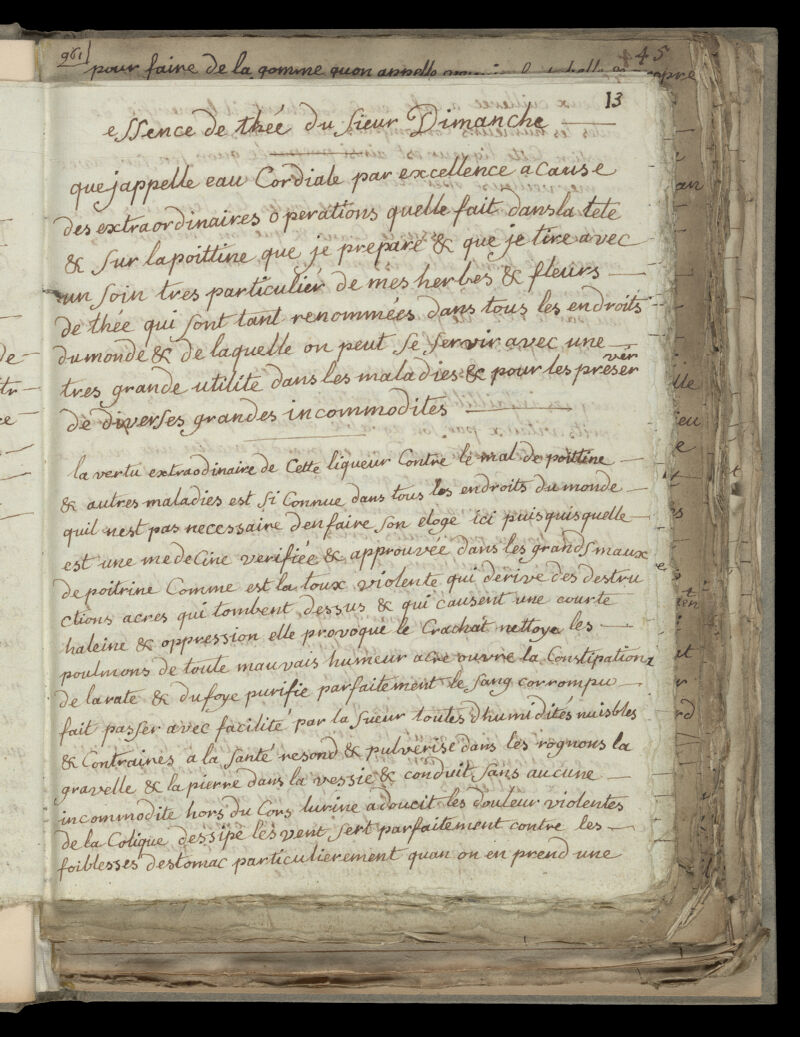 961
45
pour faire de la gomme quon appelle
13
essence de theé du sieur Dimanche
que j'appelle eau Cordiale par excellence a cause
des extraordinaires operations quelle fait dans la tete
& sur la poittine que je prepare & que je tire avec
un soin tres particuliér de mes herbes & fleurs
de thée qui sont tant renommées dans tous les endroits
du monde & de laquelle on peut se servir avec une
tres grande utilité dans les maladies & pour les préser
vér
de diverses grandes incommodites
la vertu extraodinaire de Cette liqueur Contre le mal de poittine
& autres maladies est si Connue dans tous les endroits du monde
quil nest pas necessaire den faire son eloge ici puisquisquelle
est une medecine verifiée & approuvée dans les grands maux
de poitrine Comme est la toux violente qui derive des destru
ctions acres qui tombent dessus & qui causent une courte
haleine & oppression elle provoque le Crachat nettoye les
poulmons de toute mauvais humeur acre ouvre la Constipation
de la rate & du foye purifie parfaitement le sang corrompu
fait passer avec facilité par la sueur toutes dhumidités nuisbles
& Contraires a la santé resond & pulverise dans les rognons la
gravelle & la pierre dans la vessie & conduit sans aucune
incommodite hors du Cors lurine adoucit les douleur violentes
de la Colique dessipe les vent sert parfaitement contre les
foiblesses destomac particulierement quan on en prend une